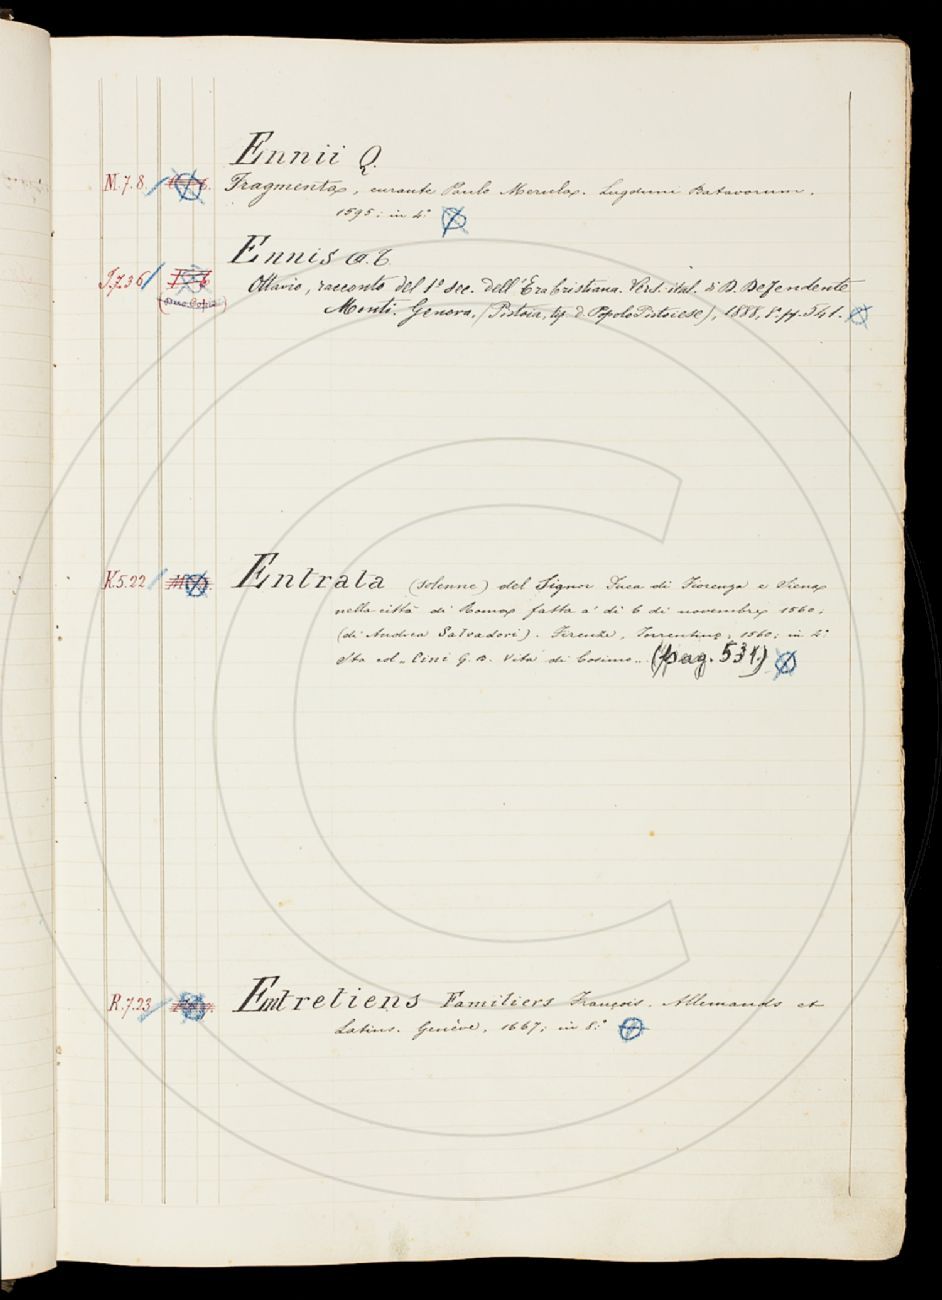 Ennii Q.
M.7.8 Fragmenta, curante Paulo Merula. Lugduni Batavorum,
1595; in 4.°
Ennis G. T.
J.7.36 Ottavio, racconto del 1° sec. dell'Era Cristiana. Vers. ital. di D. Defendente
(Due Copie) Monti. Genova, (Pistoia, tip. d. Popolo Pistoiese), 1888, 8.° pp. 541.
K.5.22 Entrata (solenne) del Signor Duca di Fiorenza e Siena
nella città di Roma fatta a' dì 6 di novembre 1560;
(di Andrea Salvadori). Firenze, Torrentino, 1560; in 4.°
Sta ed. Cini G. B. Vita di Cosimo.. (pag. 531.)
R.7.23 Entretiens Familiers François. Allemands et
Latins. Genève, 1667; in 8.°